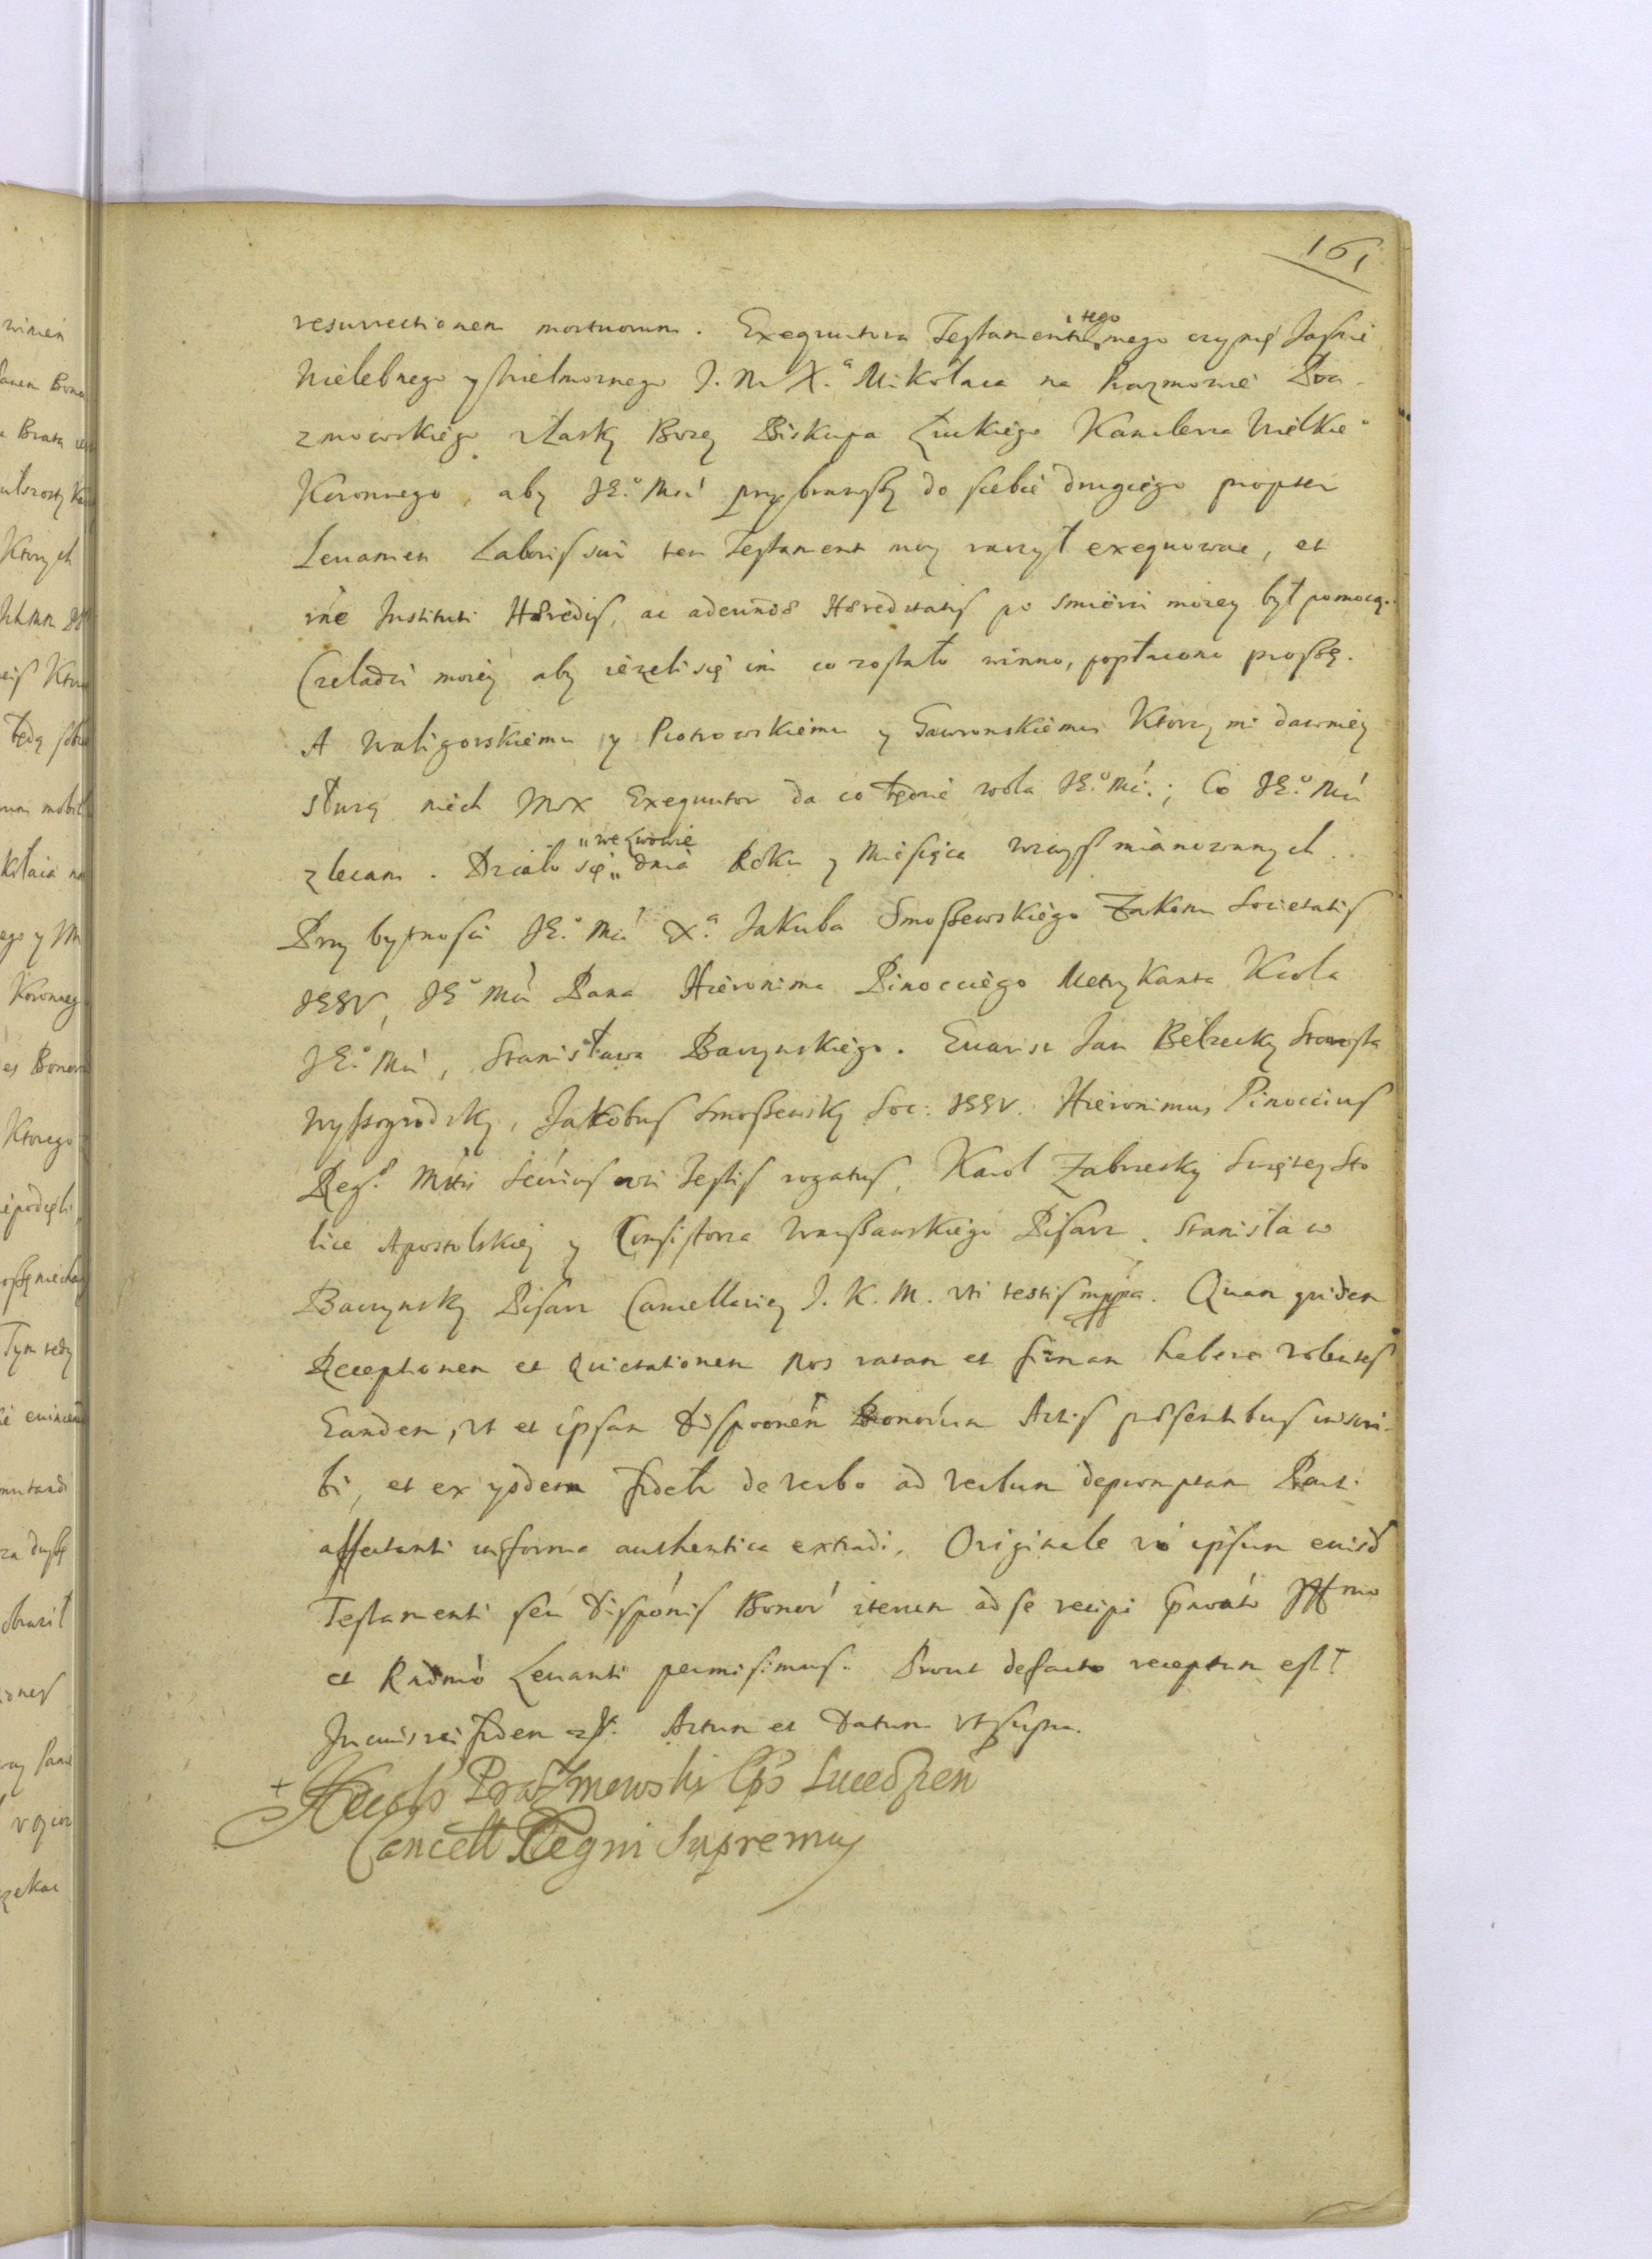 161
resurrectionem mortuorum. Exequutora Testamentu tego mego czynię Jaśnie
Wielebnego y Wielmoznego J. M. X.ª Mikołaia na Prazmowie Pra-
zmowskiego z Łasky Bozey Biskupa Łuckiego Kanclerza Wielkie°
Koronnego, aby JE.° Mść przybrawszy do siebie drugiego propter
Leuamen Laboris sui ten Testament moy raczył exequowac, et
Instituti Hæredis, ac adeundæ Hæreditatis po smierci moiey był pomocą.
Czeladzi moiey aby iezeli się im co zostało winno, popłacono proszę.
A Waligorskiemu y Piotrowskiemu y Gawronskiemu Ktorzy mi dawniey
słuzą niech Exequutor da co będzie wola JE.° Mći.; Co JE.° Mći
zlecam. Działo się „we Lwowie„ dnia Roku y Miesiąca wwysz mianowanych.
Przy bytnosci JE.° Mći X.ª Jakuba Smoszewskiego Zakonu Societatis
JESV, JE° Mći Pana Hieronima Pinocciego Metrykanta Krola
JE.° Mći, Stanisława Baczynskiego. Jan Bełzecky Starosta
Wyszogrodzky, Jakobus Smoszewsky Soc: JESV. Hieronimus Pinoccius
Reg.æ Mttis Secrius uti Testis rogatus, Karol Zabrzesky Swiętey Sto
lice Apostolskiey y Consistorza Warszawskiego Pisarz. Stanisław
Baczynsky Pisarz Cancellariey J. K. M. uti testis mppia. Quam quidem
Receptionem et Quietationem Nos ratam et firmam habere volentes
Eandem, ut et ipsam Disponem Bonorum Actis præsentibus inscri-
bi, et ex ysdem fideli de verbo ad verbum depromptam Parti
affectanti in forma authentica extradi. Originale vo ipsum euisd
Testamenti seu Disponis Bonor iterum ad se recipi Illmo
et Rndmo Leuanti permisimus. Prout de facto receptum est.
In cuius rei fidem Actum et Datum ut supra.
+ Prażmowski Eps Luceorien
Cancell Regni Supremus